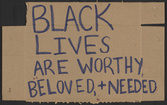 BLACK
LIVES
ARE WORTHY,
BELOVED, + NEEDED